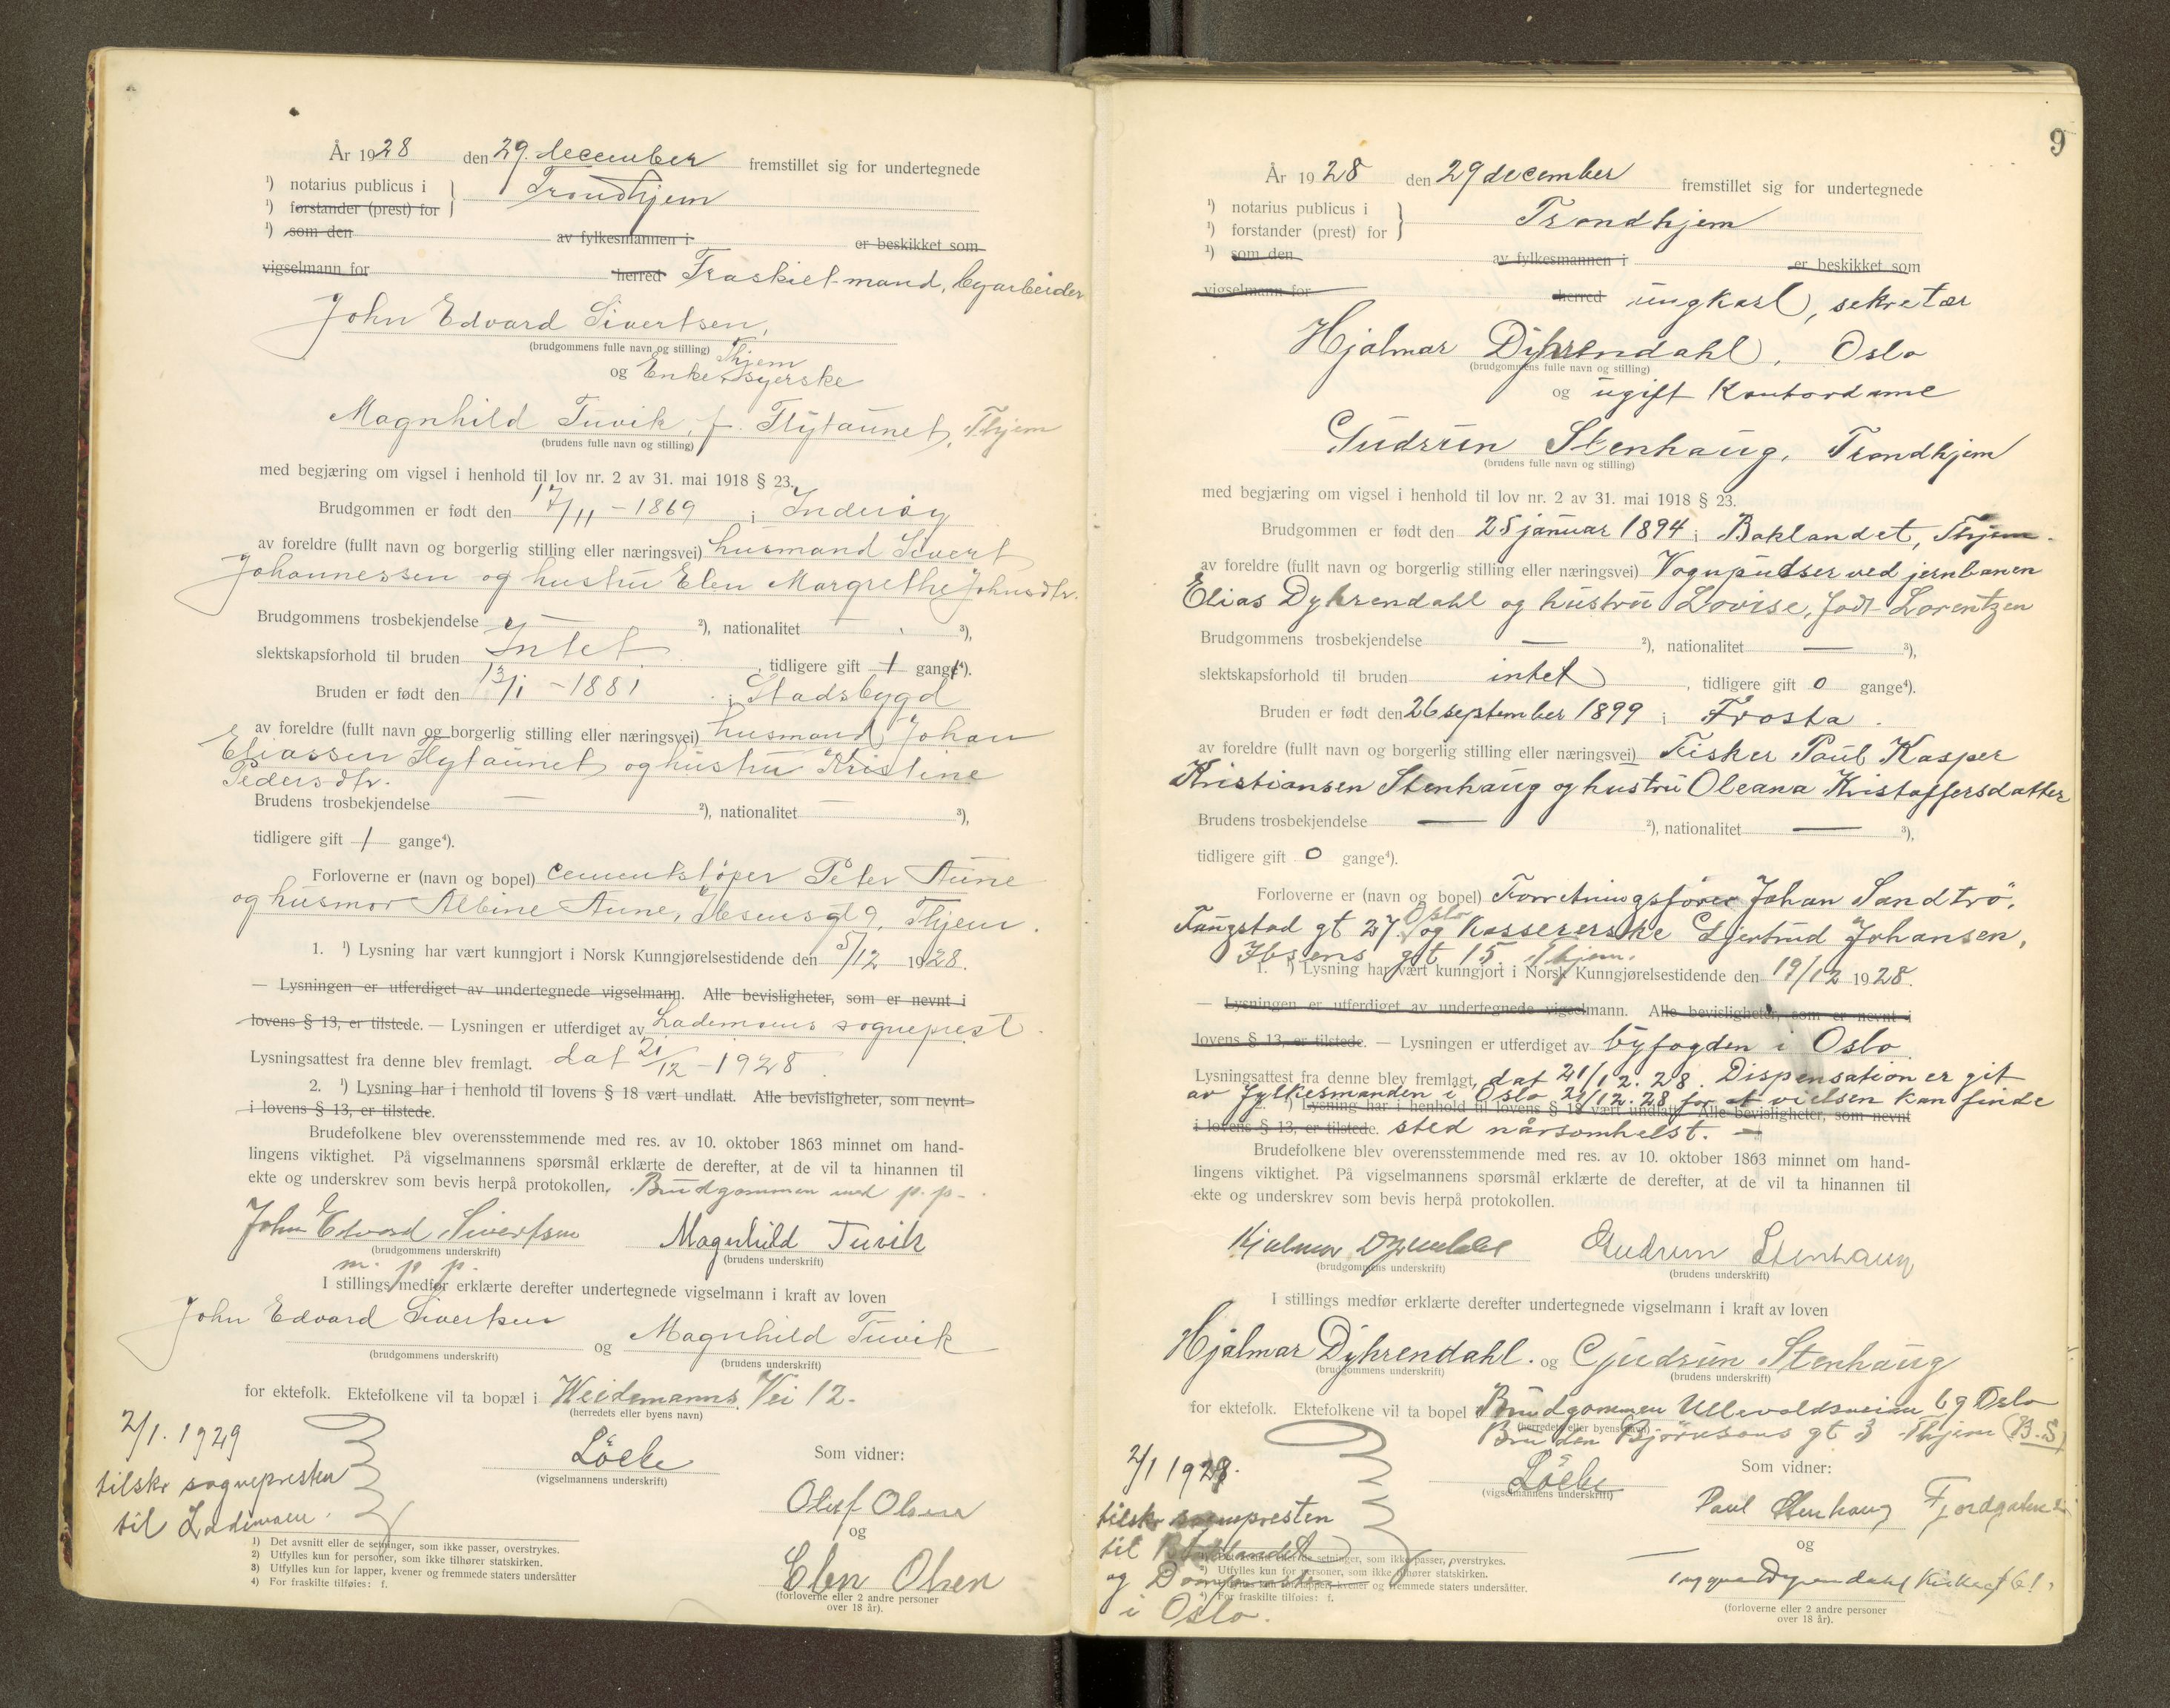 År 1928 den 29. december fremstillet sig for undertegnede
¹) notarius publicus i } Trondhjem
¹) forstander (prest) for
¹) som den av fylkesmannen i er beskikket som
vigselmann for herred Fraskilt mand, byarbeider
John Edvard Sivertsen,
(brudgommens fulle navn og stilling) Thjem
og Enke, syerske
Magnhild Tuvik, f. Flytaunet, Thjem
(brudens fulle navn og stilling)
med begjæring om vigsel i henhold til lov nr. 2 av 31. mai 1918 § 23.
Brudgommen er født den 17/11 - 1869 i Inderøy
av foreldre (fullt navn og borgerlig stilling eller næringsvei) husmand Sivert
Johannessen og hustru Elen Margrethe Johnsdtr.
Brudgommens trosbekjendelse ²), nationalitet ³),
slektskapsforhold til bruden Intet, tidligere gift 1 gang⁴).
Bruden er født den 13/1 - 1881 i Stadsbygd
av foreldre (fullt navn og borgerlig stilling eller næringsvei) husmand Johan
Eliassen Flytaunet og hustru Kristine
Pedersdtr.
Brudens trosbekjendelse — ²), nationalitet — ³),
tidligere gift 1 gange⁴).
Forloverne er (navn og bopel) cementstøper Peter Aune
og husmor Albine Aune, Ibsensgt 9, Thjem.
1. ¹) Lysning har vært kunngjort i Norsk Kunngjørelsestidende den 5/12 1928.
— Lysningen er utferdiget av undertegnede vigselmann. Alle bevisligheter, som er nevnt i
lovens § 13, er tilstede. — Lysningen er utferdiget av Lademoens sogneprest.
Lysningsattest fra denne blev fremlagt. dat 21/12 - 1928.
2. ¹) Lysning har i henhold til lovens § 18 vært undlatt. Alle bevisligheter, som nevnt
i lovens § 13, er tilstede.
Brudefolkene blev overensstemmende med res. av 10. oktober 1863 minnet om hand-
lingens viktighet. På vigselmannens spørsmål erklærte de derefter, at de vil ta hinannen til
ekte og underskrev som bevis herpå protokollen. Brudgommen med p. p.
John Edvard Sivertsen Magnhild Tuvik
(brudgommens underskrift) (brudens underskrift)
m. p. p.
I stillings medfør erklærte derefter undertegnede vigselmann i kraft av loven
John Edvard Sivertsen og Magnhild Tuvik
(brudgommens underskrift) (brudens underskrift)
for ektefolk. Ektefolkene vil ta bopæl i Weidemanns Vei 12.
(herredets eller byens navn)
2/1. 1929
tilskr sognepresten
til Lademoen.
(vigselmannens underskrift)
Som vidner:
Oluf Olsen
og
Elen Olsen
(forloverne eller 2 andre personer
over 18 år).
1) Det avsnitt eller de setninger, som ikke passer, overstrykes.
2) Utfylles kun for personer, som ikke tilhører statskirken.
3) Utfylles kun for lapper, kvener og fremmede staters undersåtter
4) For fraskilte tilføies: f.
9
År 1928 den 29 december fremstillet sig for undertegnede
¹) notarius publicus i } Trondhjem
¹) forstander (prest) for
¹) som den av fylkesmannen i er beskikket som
vigselmann for herred ungkarl, sekretær
Hjalmar Dyhrendahl, Oslo
(brudgommens fulle navn og stilling)
og ugift Kontordame
Gudrun Stenhaug, Trondhjem
(brudens fulle navn og stilling)
med begjæring om vigsel i henhold til lov nr. 2 av 31. mai 1918 § 23.
Brudgommen er født den 25 januar 1894 i Baklandet, Thjem.
av foreldre (fullt navn og borgerlig stilling eller næringsvei) Vognpudser ved jernbanen
Elias Dyhrendahl og hustru Lovise, født Lorentzen
Brudgommens trosbekjendelse — ²), nationalitet — ³),
slektskapsforhold til bruden intet, tidligere gift 0 gange⁴).
Bruden er født den 26 september 1899 i Frosta.
av foreldre (fullt navn og borgerlig stilling eller næringsvei) Fisker Paul Kasper
Kristiansen Stenhaug og hustru Oleana Kristoffersdatter
Brudens trosbekjendelse — ²), nationalitet — ³),
tidligere gift 0 gange⁴).
Forloverne er (navn og bopel) Forretningsfører Johan Sandtrø,
Fougstad gt 27. Oslo og Kassererske Gjertrud Johansen,
Ibsens gt 15. Thjem.
1. ¹) Lysning har vært kunngjort i Norsk Kunngjørelsestidende den 19/12 1928.
— Lysningen er utferdiget av undertegnede vigselmann. Alle bevisligheter, som er nevnt i
lovens § 13, er tilstede. — Lysningen er utferdiget av byfogden i Oslo.
Lysningsattest fra denne blev fremlagt, dat 21/12. 28. Dispensation er git
av Fylkesmanden i Oslo 21/12. 28 for at vielsen kan finde
2. ¹) Lysning har i henhold til lovens § 18 vært undlatt. Alle bevisligheter, som nevnt
i lovens § 13, er tilstede. sted nårsomhelst. —
Brudefolkene blev overensstemmende med res. av 10. oktober 1863 minnet om hand-
lingens viktighet. På vigselmannens spørsmål erklærte de derefter, at de vil ta hinannen til
ekte og underskrev som bevis herpå protokollen.
Hjalmar Dyrendahl Gudrun Stenhaug
(brudgommens underskrift) (brudens underskrift)
I stillings medfør erklærte derefter undertegnede vigselmann i kraft av loven
Hjalmar Dyhrendahl. og Gudrun Stenhaug
(brudgommens underskrift) (brudens underskrift)
for ektefolk. Ektefolkene vil ta bopel i Brudgommen Ullevoldsveien 69 Oslo
(herredets eller byens navn)
Bruden Bjørnsons gt 3 Thjem (B.S)
2/1 1929.
tilskr sognepresten
til Baklandet
og Domprosten
i Oslo.
(vigselmannens underskrift)
Som vidner:
Paul Stenhaug
og
Dyrendahl Kirkegt 61.
(forloverne eller 2 andre personer
over 18 år).
1) Det avsnitt eller de setninger, som ikke passer, overstrykes.
2) Utfylles kun for personer, som ikke tilhører statskirken.
3) Utfylles kun for lapper, kvener og fremmede staters undersåtter.
4) For fraskilte tilføies: f.